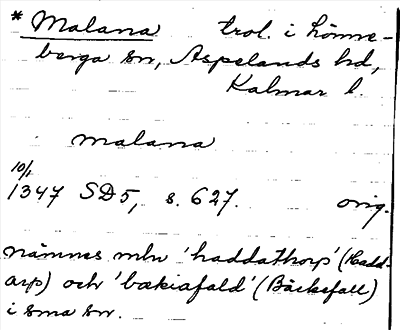 * Malana trol. i Lönne-
berga sn, Aspelands hd,
Kalmar l.
malana
10/1
1347 SD5, s. 627. orig.
nämnes mhv 'haddathorp' (Hadd-
arp) och 'bækiafald' (Bäckefall)
i sma sn.